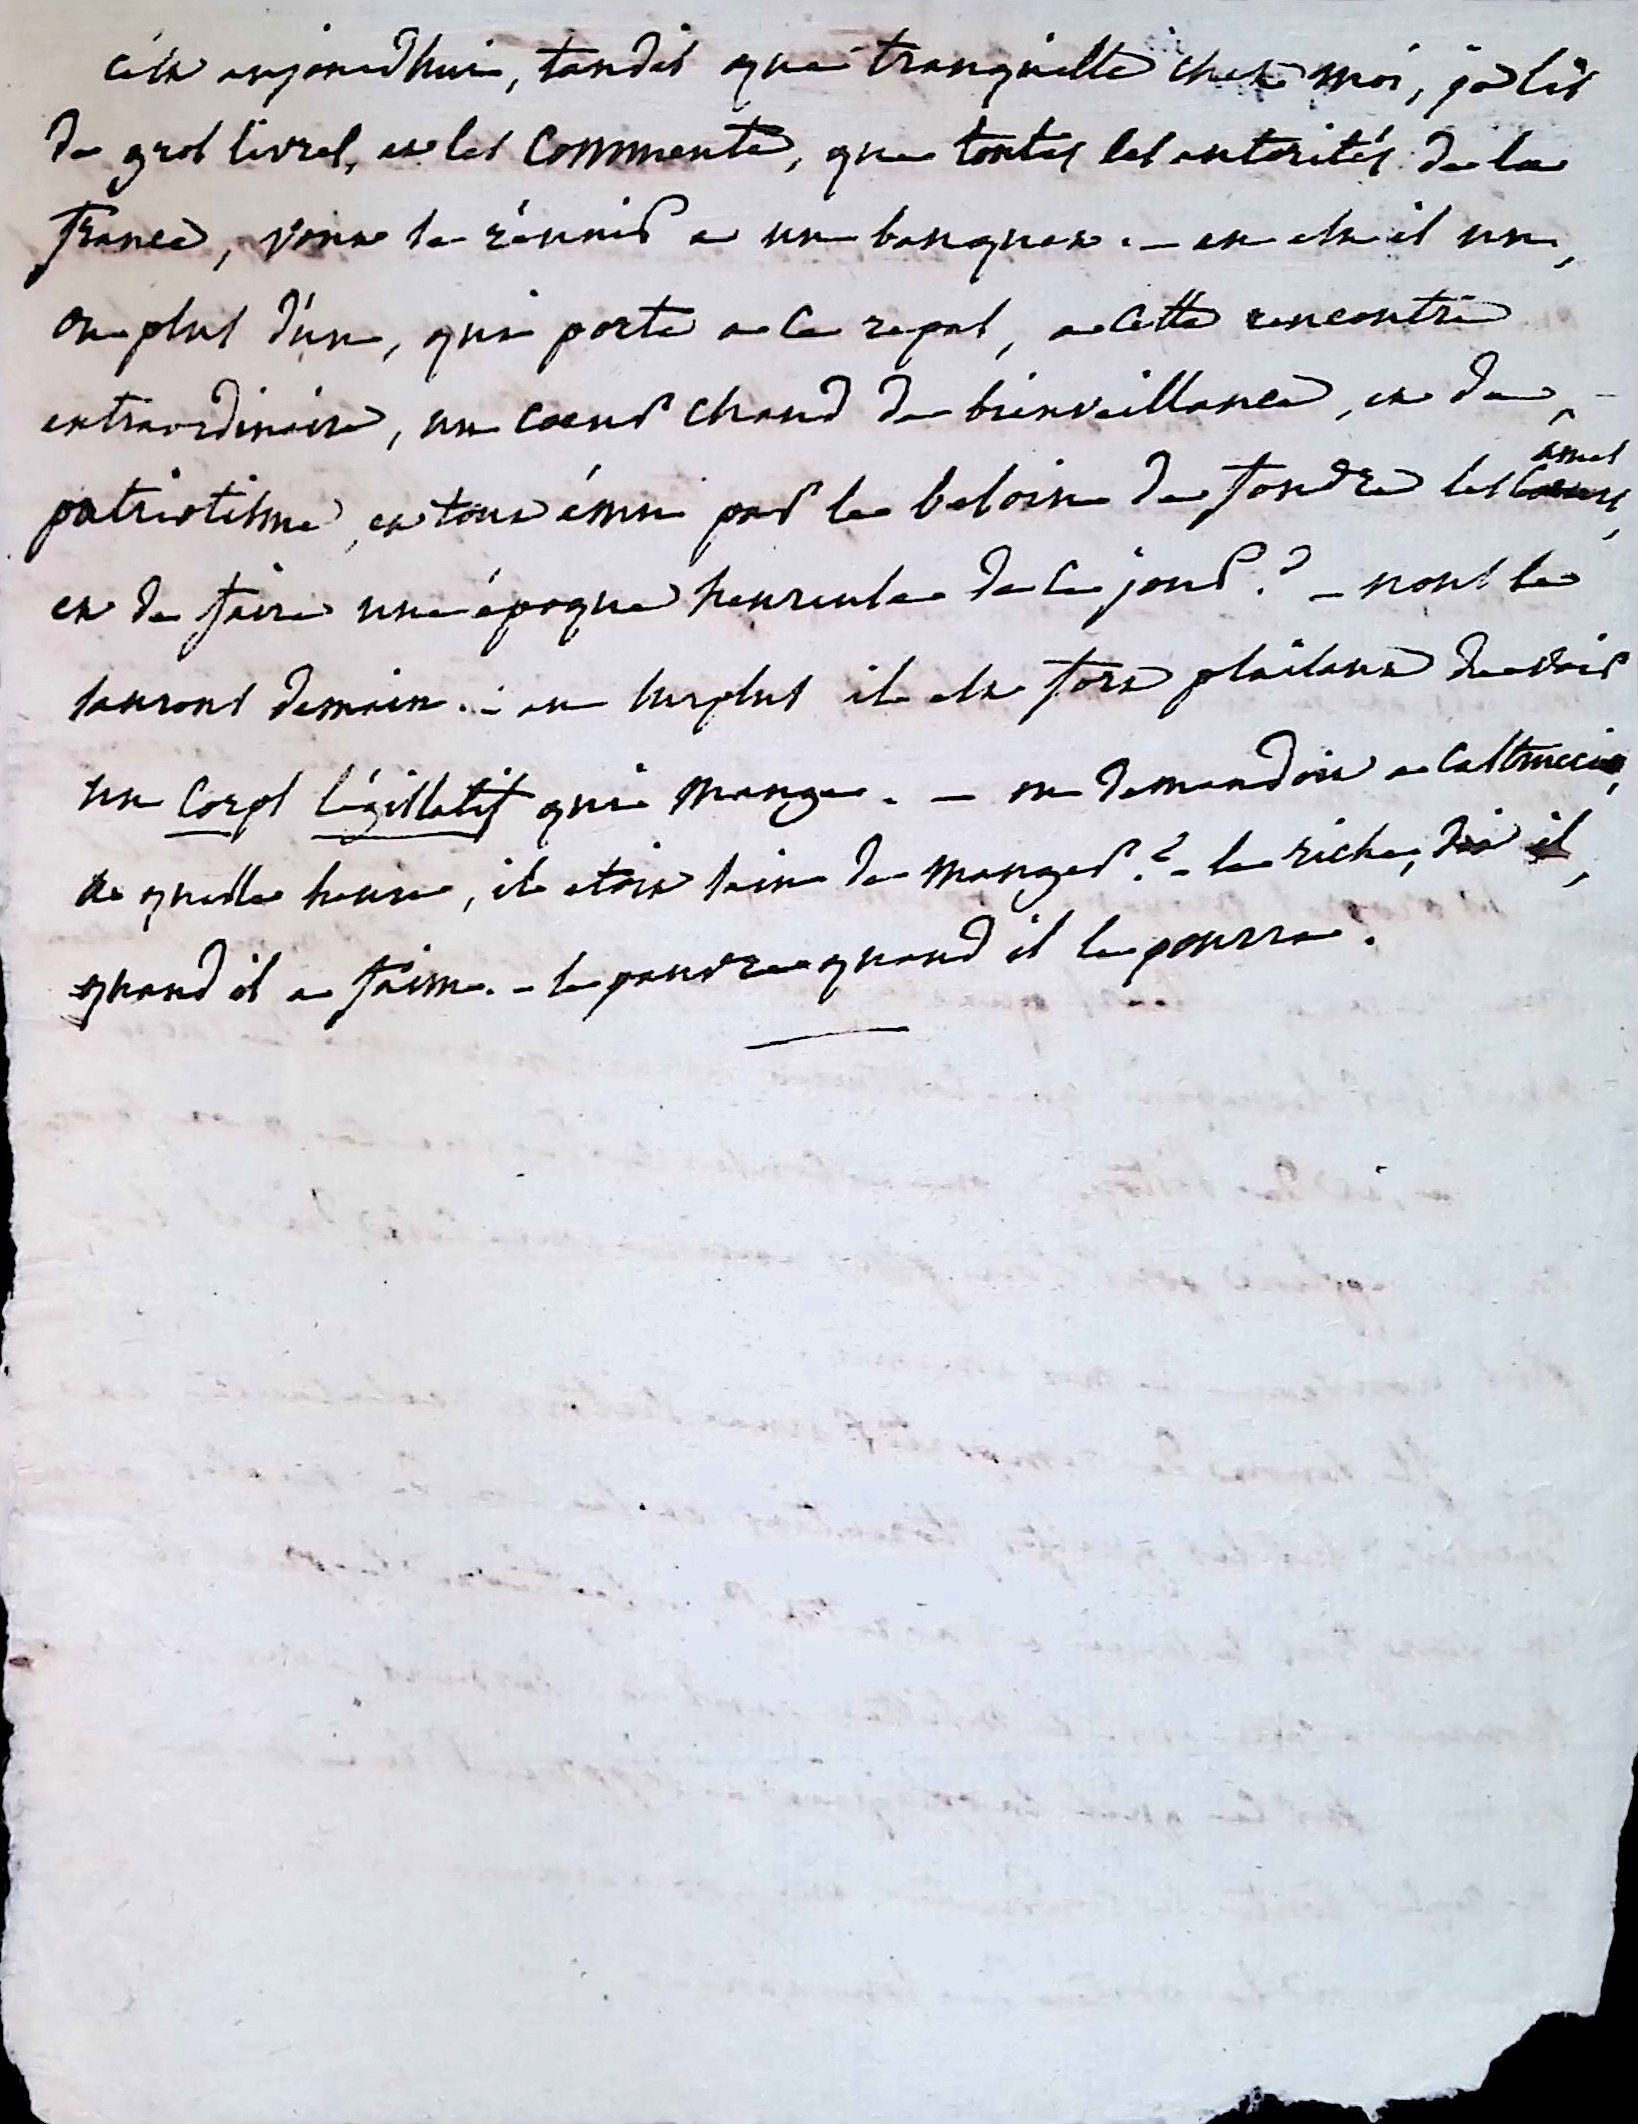 c'est aujourdhui, tandis que tranquille chez moi, je lis
de gros livres, et les commente, que toutes les autorités de la
france, vont se réunir a un banquet. - en est il un,
ou plus d'un, qui porte a ce repas, a cette rencontre
extraordinaire, un coeur chaud de bienveillance, et de
patriotisme, et tout ému par le besoin de fondre les coeurs ames,
et de faire une époque heureuse de ce jour ? - nous le
saurons demain. - au surplus il est fort plaisant de voir
un corps législatif qui mange. - on demandoit a castruccio,
a quelle heure, il etoit sain de manger ? - le riche, dit il,
quand il a faim. - le pauvre quand il le pourra.